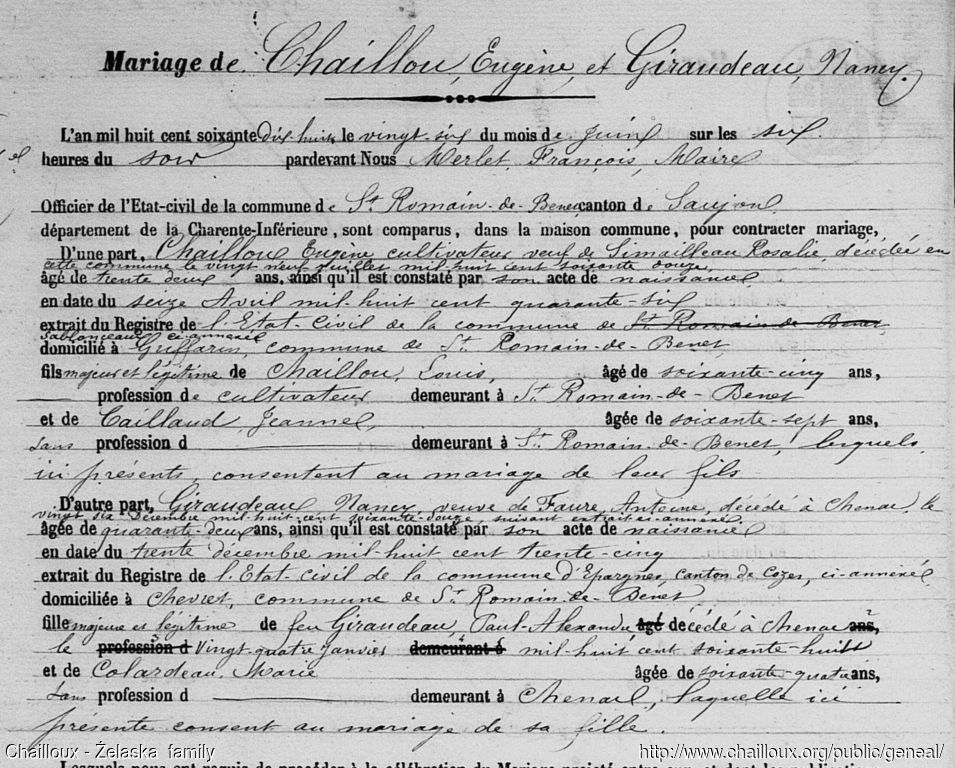 Mariage de Chaillou, Eugène, et Giraudeau, Nancy.
L'an mil huit cent soixante Dix huit, le vingt-six du mois de Juin sur les six
heures du soir pardevant Nous Merlet, François, Maire
Officier de l'Etat-civil de la commune de St Romain-de-Benet canton de Saujon
département de la Charente-Inférieure, sont comparus, dans la maison commune, pour contracter mariage,
D'une part, Chaillou Eugène cultivateur veuf de Simailleau Rosalie, décédée en
cette commune le vingt neuf Juillet mil huit cent soixante douze,
âgé de trente deux ans, ainsi qu'il est constaté par son acte de naissance
en date du seize Avril mil huit cent quarante-six
extrait du Registre de l'Etat-Civil de la commune de St Romain de Benet
Sablonceaux ci-annexé
domicilié à Griffarin, commune de St Romain-de-Benet
fils majeur et légitime de Chaillou, Louis, âgé de soixante-cinq ans,
profession de cultivateur demeurant à St Romain-de-Benet
et de Caillaud, Jeanne, âgée de soixante-sept ans,
sans profession d demeurant à St Romain-de-Benet, lesquels
ici présents, consentent au mariage de leur fils
D'autre part, Giraudeau Nancy, veuve de Faure, Antoine, décédé à Chenac, le
vingt six Décembre mil huit cent soixante-douze suivant extrait ci-annexé
âgée de quarante deux ans, ainsi qu'il est constaté par son acte de naissance
en date du trente décembre mil huit cent trente-cinq
extrait du Registre de l'Etat-civil de la commune d'Epargnes, canton de Cozes, ci-annexé
domiciliée à Chevret, commune de St Romain-de-Benet
fille majeure et légitime de feu Giraudeau, Paul-Alexandre âgé décédé à Chenac ans,
le profession d vingt-quatre Janvier demeurant à mil-huit cent soixante-huit
et de Colardeau, Marie âgée de soixante-quatre ans,
sans profession d demeurant à Chenac, laquelle ici
présente consent au mariage de sa fille.
Chailloux - Żelaska family http://www.chailloux.org/public/geneal/